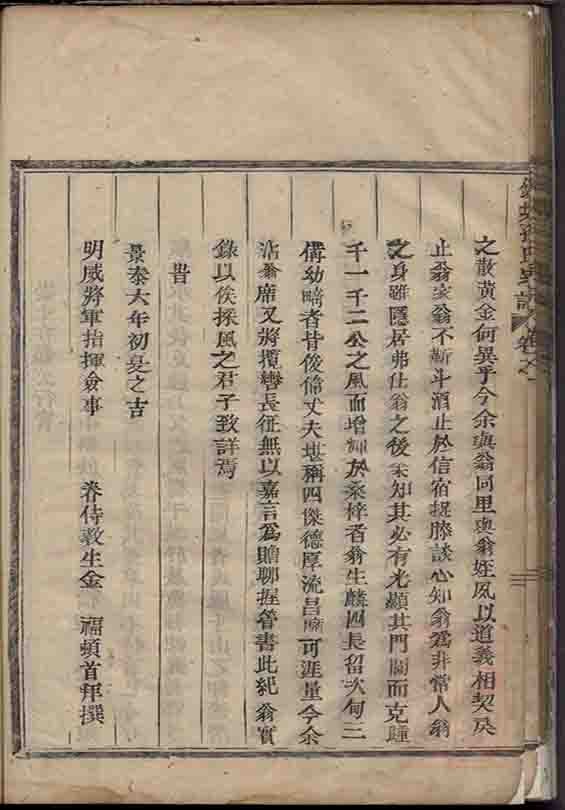 之散黃金何異乎今余與翁同里與翁姪夙以道義相契戾
止翁家翁不靳斗酒止於信宿捉膝談心知翁為非常人翁
之身雖隱居弗仕翁之後未知其必有光顯其門閭而克踵
千一千二公之風而增輝於桑梓者翁生麟四長留次旬三
備幼畧者皆俊偉丈夫堪稱四傑德厚流昌 可涯量今余
沾翁席又將攬轡長征無以嘉言為贈聊握管書此紀翁實
錄以俟採風之君子致詳焉
旹
景泰六年初夏之吉
明威將軍指揮僉事 眷侍教生金 福頓首拜撰
氏 譜 卷之一